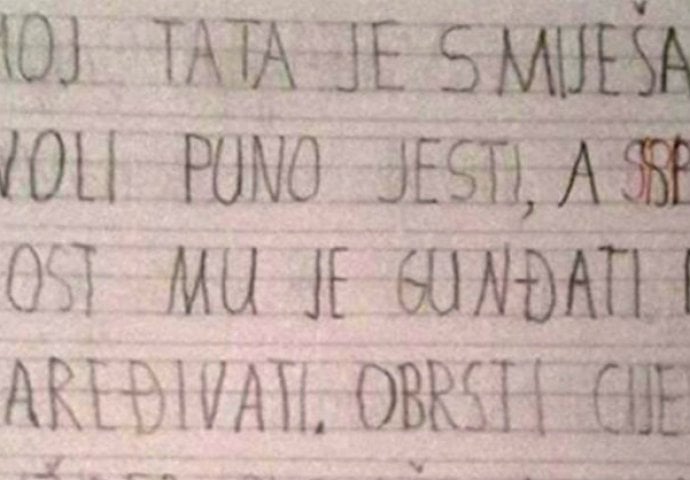 MOJ TATA JE SMIJEŠA
VOLI PUNO JESTI, A
OST MU JE GUNĐATI
AREĐIVATI. OBRSTI CIJE